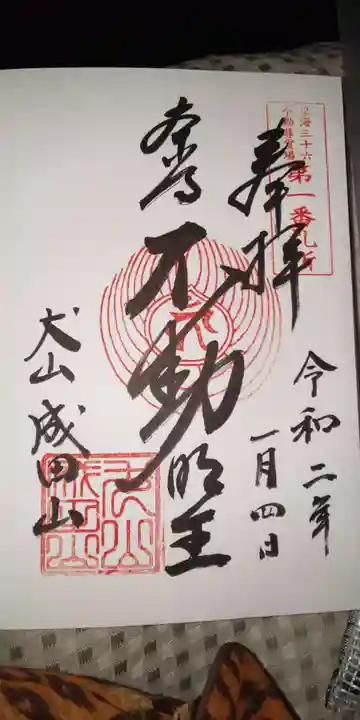 東海三十六
不動尊霊場
第一番札所
奉拝
令和二年
一月四日
不動明王
犬山成田山